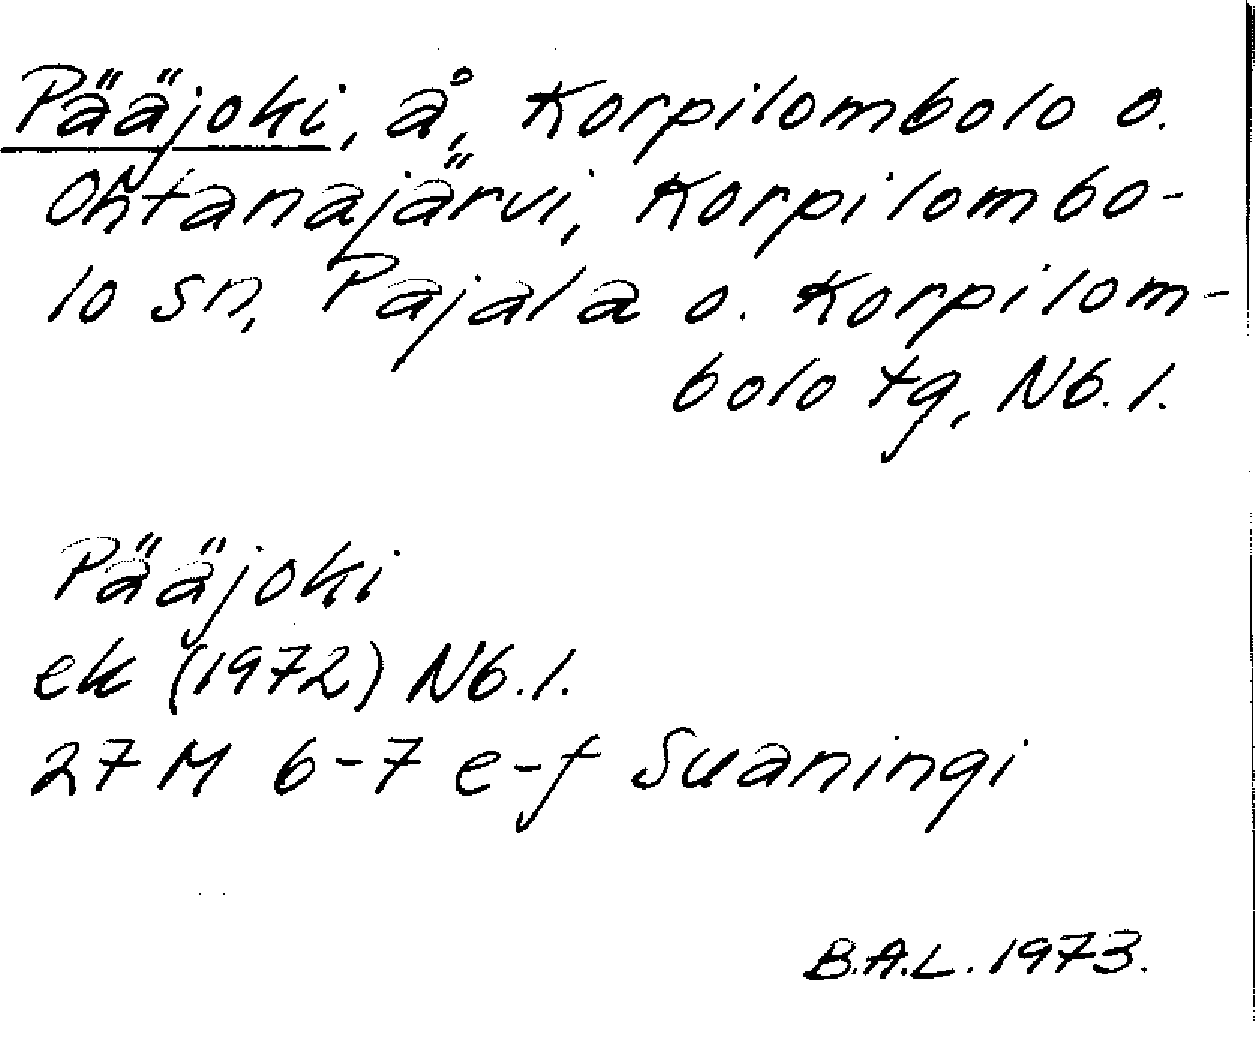 Pääjoki, å, Korpilombolo o.
Ohtanajärvi, Korpilombo-
lo sn, Pajala o. Korpilom-
bolo tg, Nb. l.
Pääjoki
ek (1972) Nb. l.
27 M 6-7 e-f Suaningi
B.A.L. 1973.